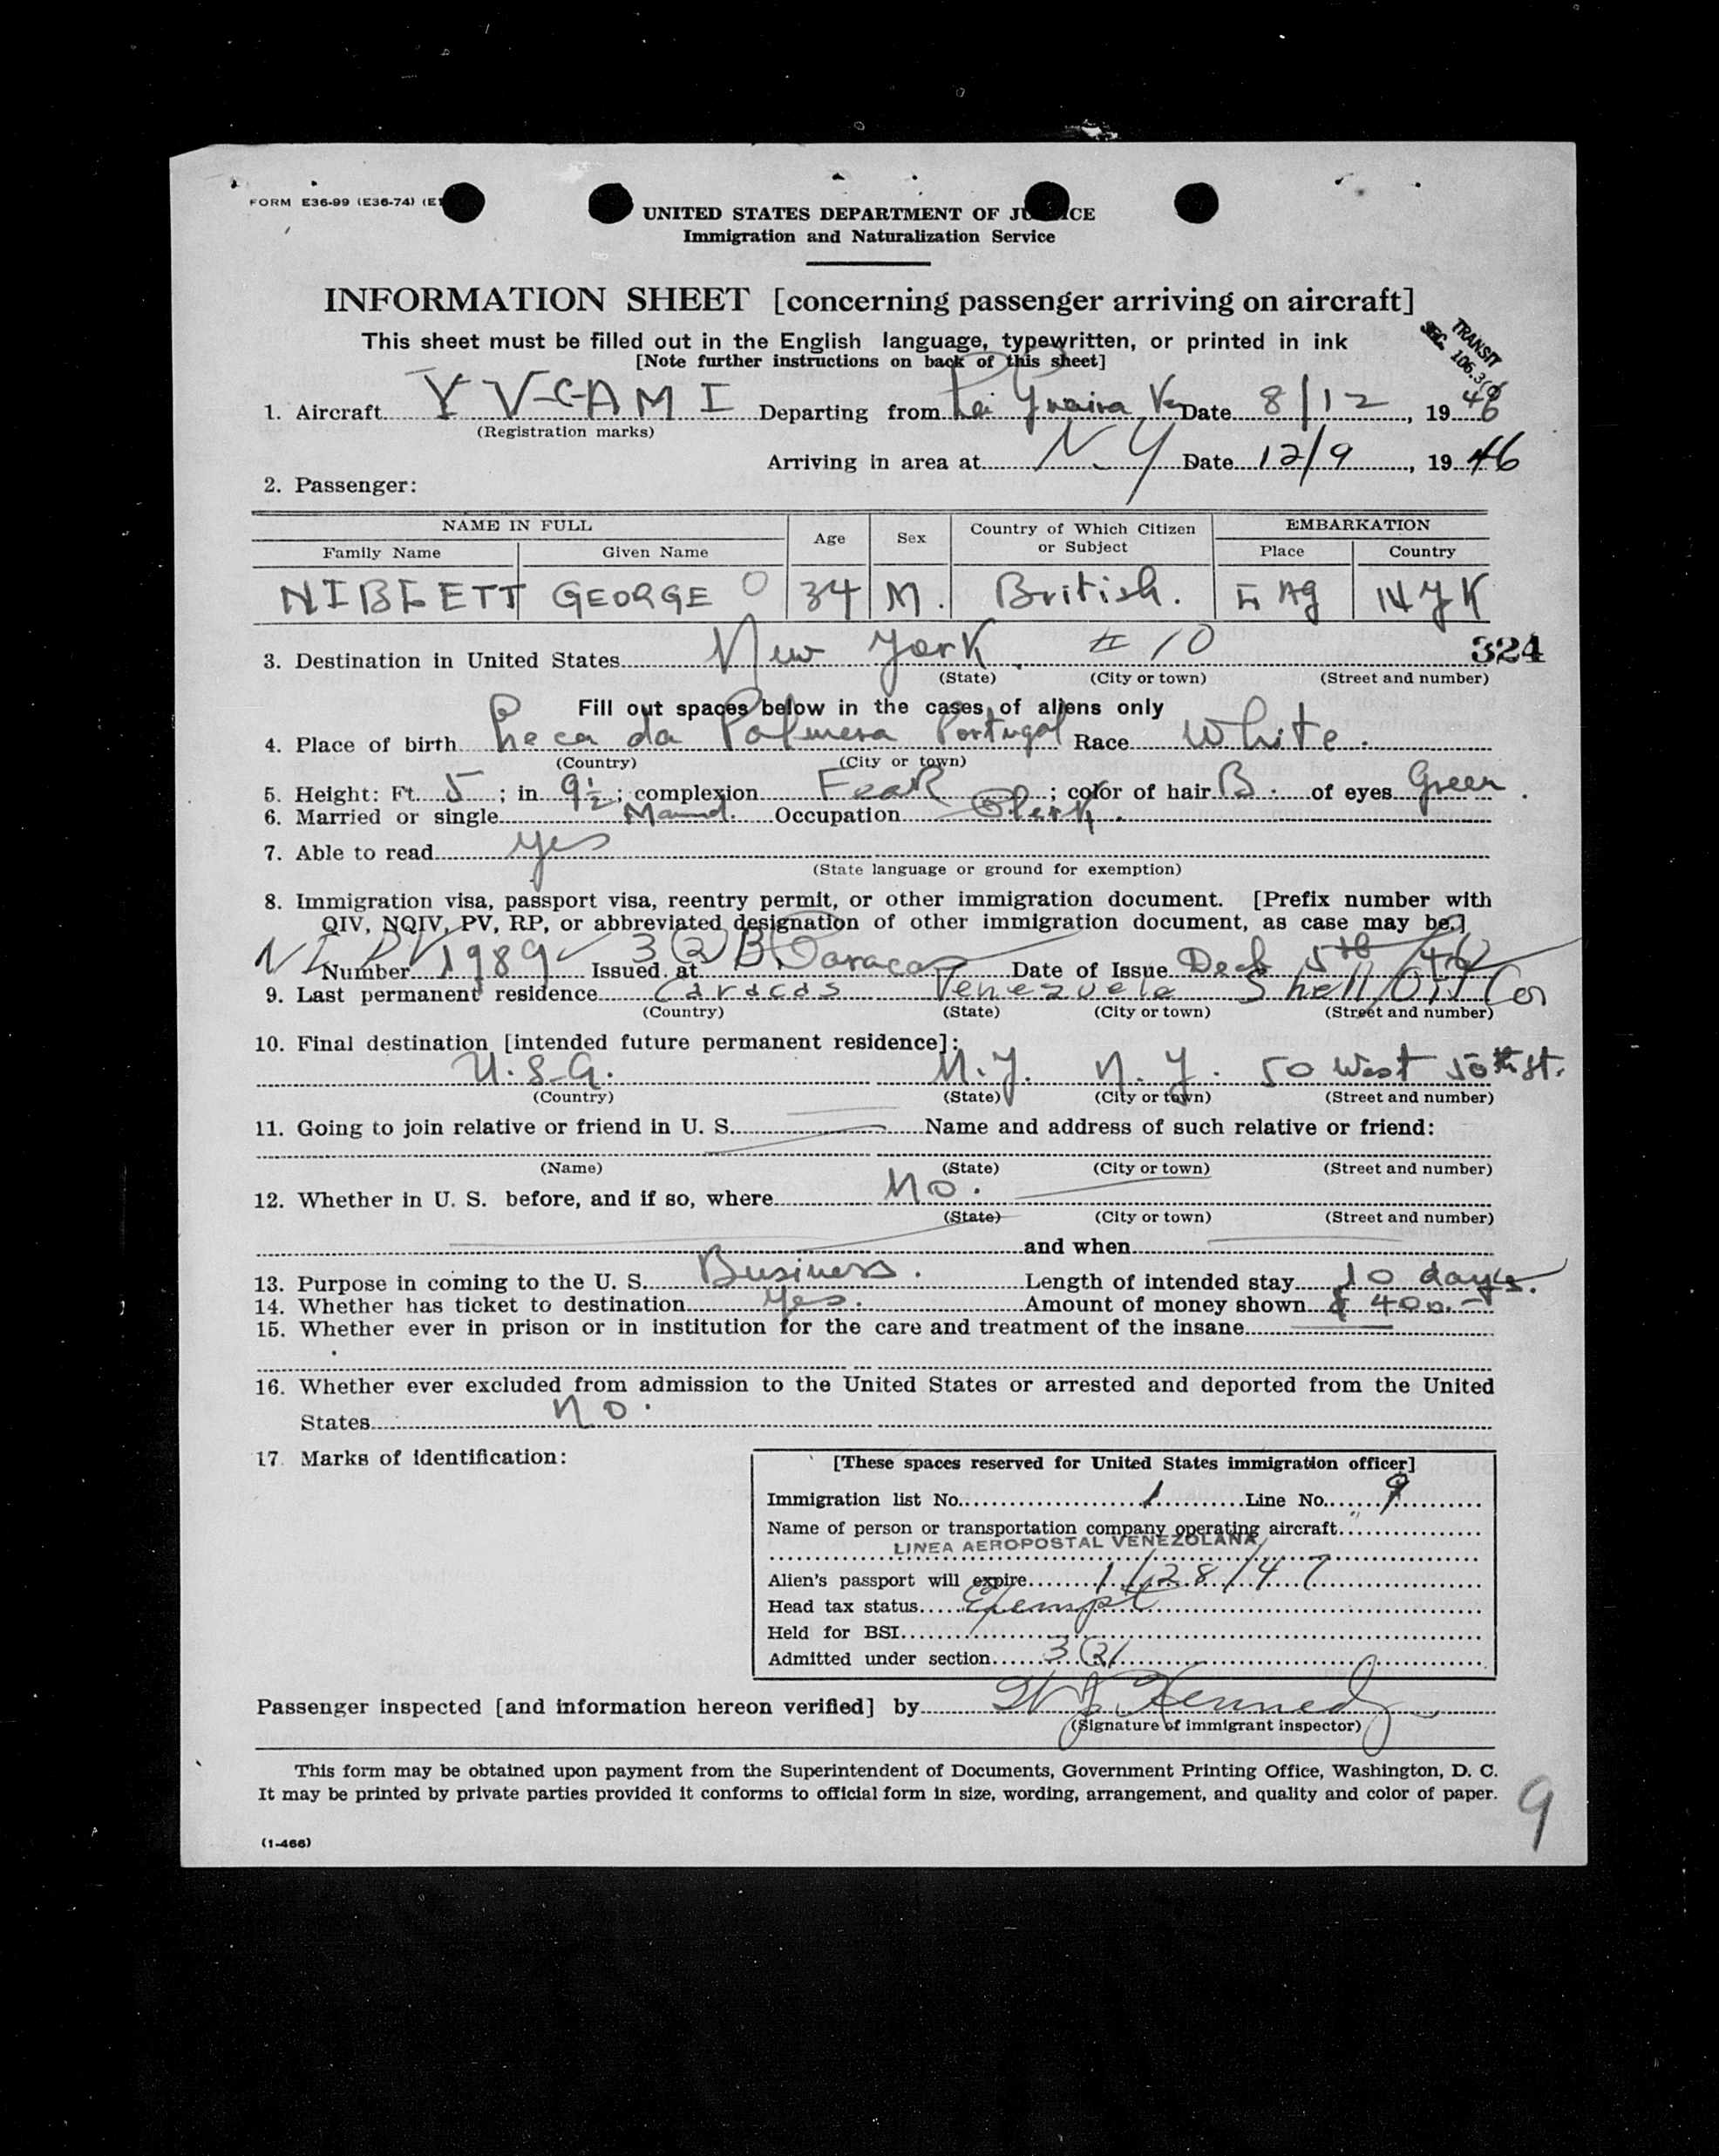 FORM E36-99 (E36-74)
UNITED STATES DEPARTMENT OF JUSTICE
Immigration and Naturalization Service
INFORMATION SHEET [concerning passenger arriving on aircraft]
This sheet must be filled out in the English language, typewritten, or printed in ink
[Note further instructions on back of this sheet]
TRANSIT
SEC. 106.3
1. Aircraft YV-C-AMI Departing from La Guaira Ve Date 8/12, 1946
(Registration marks)
Arriving in area at N.Y Date 12/9, 1946
2. Passenger:
NAME IN FULL Age Sex Country of Which Citizen or Subject EMBARKATION
Family Name Given Name Place Country
NIBLETT GEORGE O 34 M. British.
3. Destination in United States New York. # 10 324
(State) (City or town) (Street and number)
Fill out spaces below in the cases of aliens only
4. Place of birth da Palmera Portugal Race White.
(Country) (City or town)
5. Height: Ft. 5; in. 9½; complexion; color of hair B. of eyes Green.
6. Married or single Occupation Clerk.
7. Able to read yes
(State language or ground for exemption)
8. Immigration visa, passport visa, reentry permit, or other immigration document. [Prefix number with
QIV, NQIV, PV, RP, or abbreviated designation of other immigration document, as case may be.]
Number 1989 Issued at Caracas Date of Issue Dec 5th /46
9. Last permanent residence Caracas Venezuela Shell Oil Co
(Country) (State) (City or town) (Street and number)
10. Final destination [intended future permanent residence]:
U.S.A. N.Y. N.Y. 50 West 50th St.
(Country) (State) (City or town) (Street and number)
11. Going to join relative or friend in U. S. Name and address of such relative or friend:
(Name) (State) (City or town) (Street and number)
12. Whether in U. S. before, and if so, where No.
(State) (City or town) (Street and number)
and when
13. Purpose in coming to the U. S. Business. Length of intended stay 10 days.
14. Whether has ticket to destination Yes. Amount of money shown $ 400.-
15. Whether ever in prison or in institution for the care and treatment of the insane
16. Whether ever excluded from admission to the United States or arrested and deported from the United
States No.
17. Marks of identification:
[These spaces reserved for United States immigration officer]
Immigration list No. 1 Line No. 9
Name of person or transportation company operating aircraft
LINEA AEROPOSTAL VENEZOLANA
Alien's passport will expire 1/28/47
Head tax status Exempt
Held for BSI
Admitted under section 3(2)
Passenger inspected [and information hereon verified] by Kennedy
(Signature of immigrant inspector)
This form may be obtained upon payment from the Superintendent of Documents, Government Printing Office, Washington, D. C.
It may be printed by private parties provided it conforms to official form in size, wording, arrangement, and quality and color of paper.
9
(1-466)